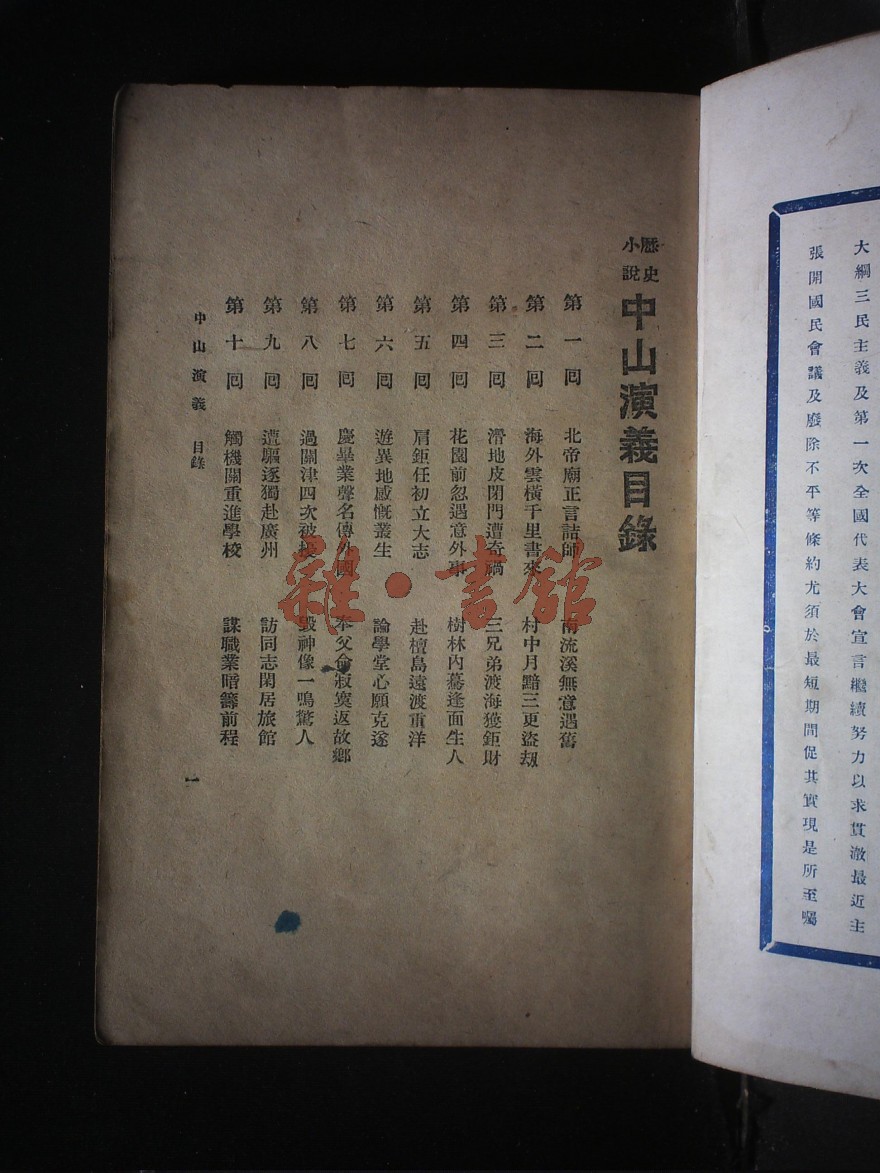 大綱三民主義及第一次全國代表大會宣言繼續努力以求貫澈最近主
張開國民會議及廢除不平等條約尤須於最短期間促其實現是所至囑
歷史小說 中山演義目錄
第一回 北帝廟正言詰師 南流溪無意遇舊
第二回 海外雲橫千里書來 村中月黯三更盜刼
第三回 滑地皮閉門遭奇禍 三兄弟渡海獲鉅財
第四回 花園前忽遇意外事 樹林內驀逢面生人
第五回 肩鉅任初立大志 赴檀島遠渡重洋
第六回 遊異地感慨叢生 論學堂心願克遂
第七回 慶畢業聲名傳外國 奉父命寂寞返故鄉
第八回 過關津四次被擾 毀神像一鳴驚人
第九回 遭驅逐獨赴廣州 訪同志閑居旅館
第十回 觸機關重進學校 謀職業暗籌前程
中山演義 目錄
一
雜·書館